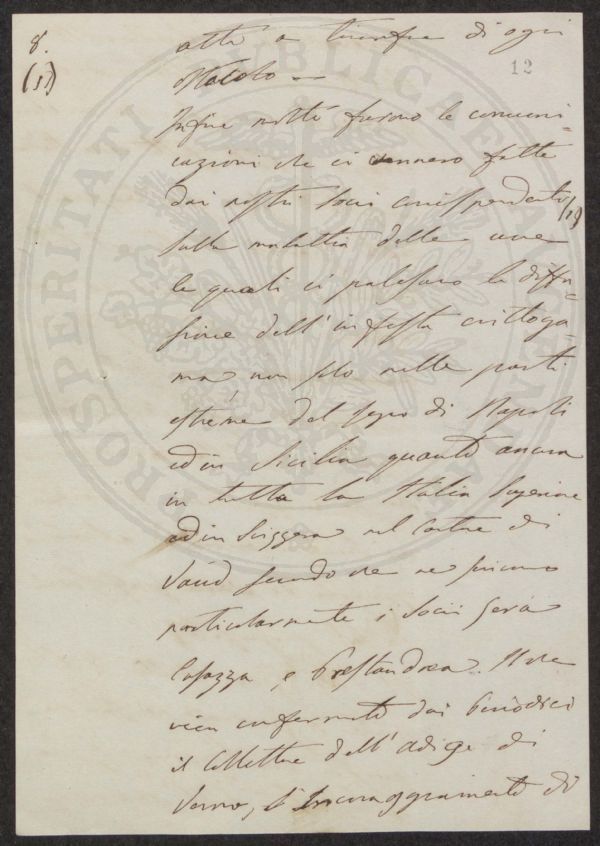 8.
(51)
12
atti a trionfare di ogni
ostacolo —
Infine molte furono le comuni-
cazioni che ci vennero fatte
dai nostri Socii corrispondenti (1)
sulla malattia delle uve
le quali ci palesaro la diffu-
sione dell'infesta crittoga-
ma non solo nelle parti
estreme del Regno di Napoli
ed in Sicilia quanto ancora
in tutta la Italia Superiore
ed in Svizzera nel Cantone di
Vaud secondo che ne
particolarmente i Socii Gera
Casazza, e Prestandrea. Il che
vien confermato dai Periodici
il Collettore dell'Adige di
Verona, l'Incoraggiamento di
PROSPERITATI PUBLICAE AUGENDAE